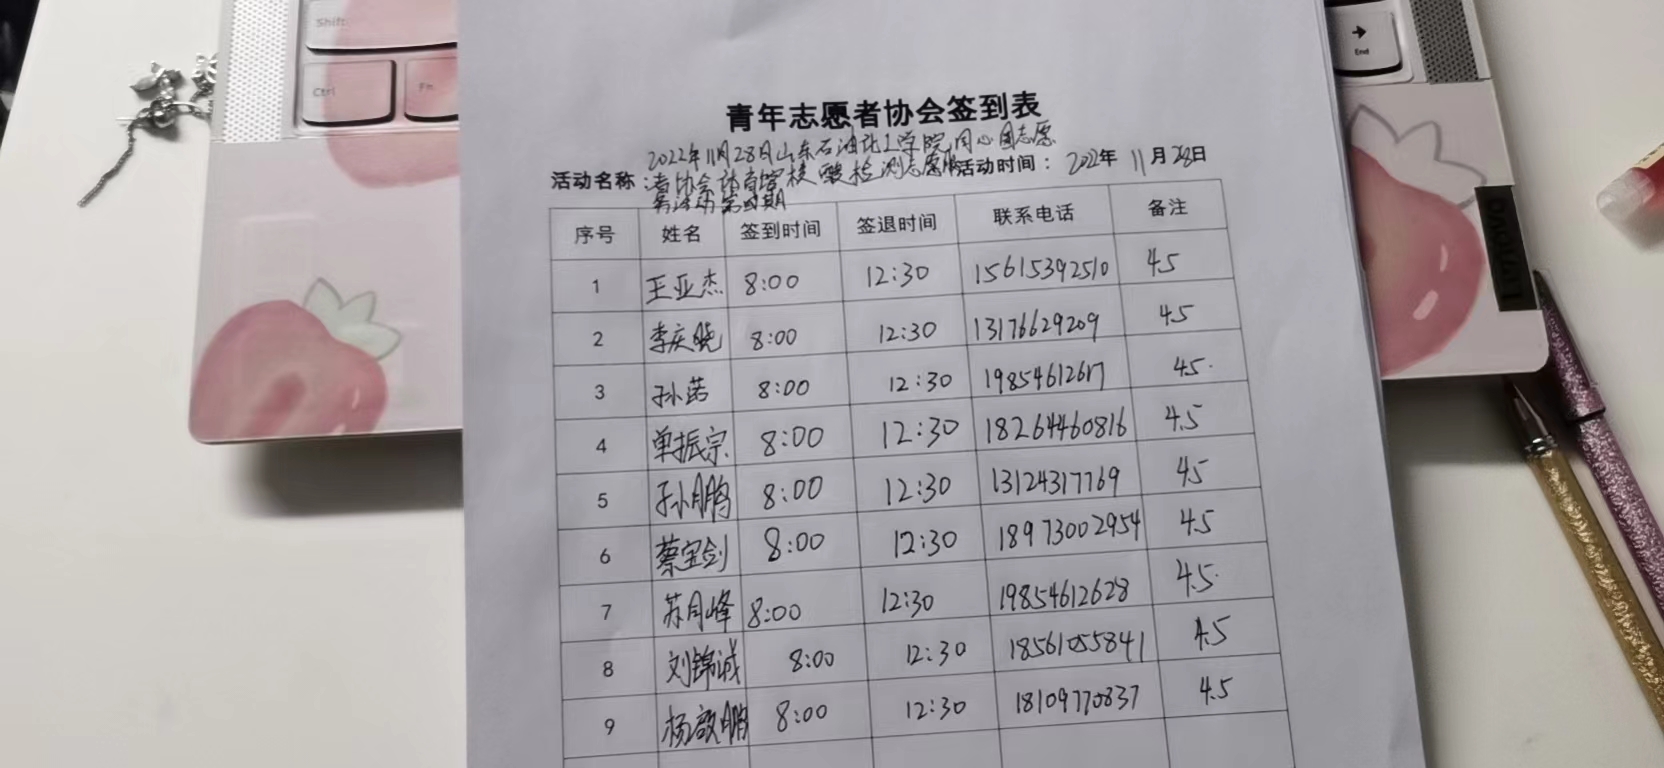 Shift
Ctrl
Fn
End
青年志愿者协会签到表
2022年11月28日山东石油化工学院同心圆志愿
活动名称：者协会体育馆核酸检测志愿服 活动时间：2022年 11月28日
务活动第四期
序号 姓名 签到时间 签退时间 联系电话 备注
1 王亚杰 8:00 12:30 15615392510 4.5
2 李庆晓 8:00 12:30 13176629209 4.5
3 孙诺 8:00 12:30 19854612617 4.5
4 单振宗 8:00 12:30 18264460816 4.5
5 孙鹏 8:00 12:30 13124317769 4.5
6 蔡宝剑 8:00 12:30 18973002954 4.5
7 苏月峰 8:00 12:30 19854612628 4.5
8 刘锦诚 8:00 12:30 18561055841 4.5
9 杨啟鹏 8:00 12:30 18109770837 4.5